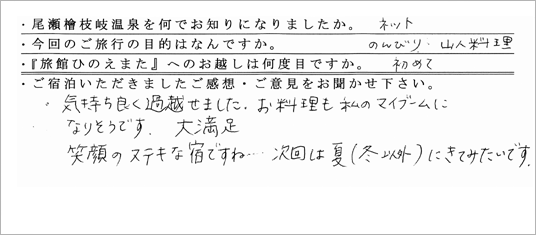 ・尾瀬檜枝岐温泉を何でお知りになりましたか。 ネット
・今回のご旅行の目的はなんですか。 のんびり・山人料理
・『旅館ひのえまた』へのお越しは何度目ですか。 初めて
・ご宿泊いただきましたご感想・ご意見をお聞かせ下さい。
・気持ち良く過越せました。お料理も私のマイブームに
なりそうです。 大満足
笑顔のステキな宿ですね… 次回は夏(冬以外)にきてみたいです。